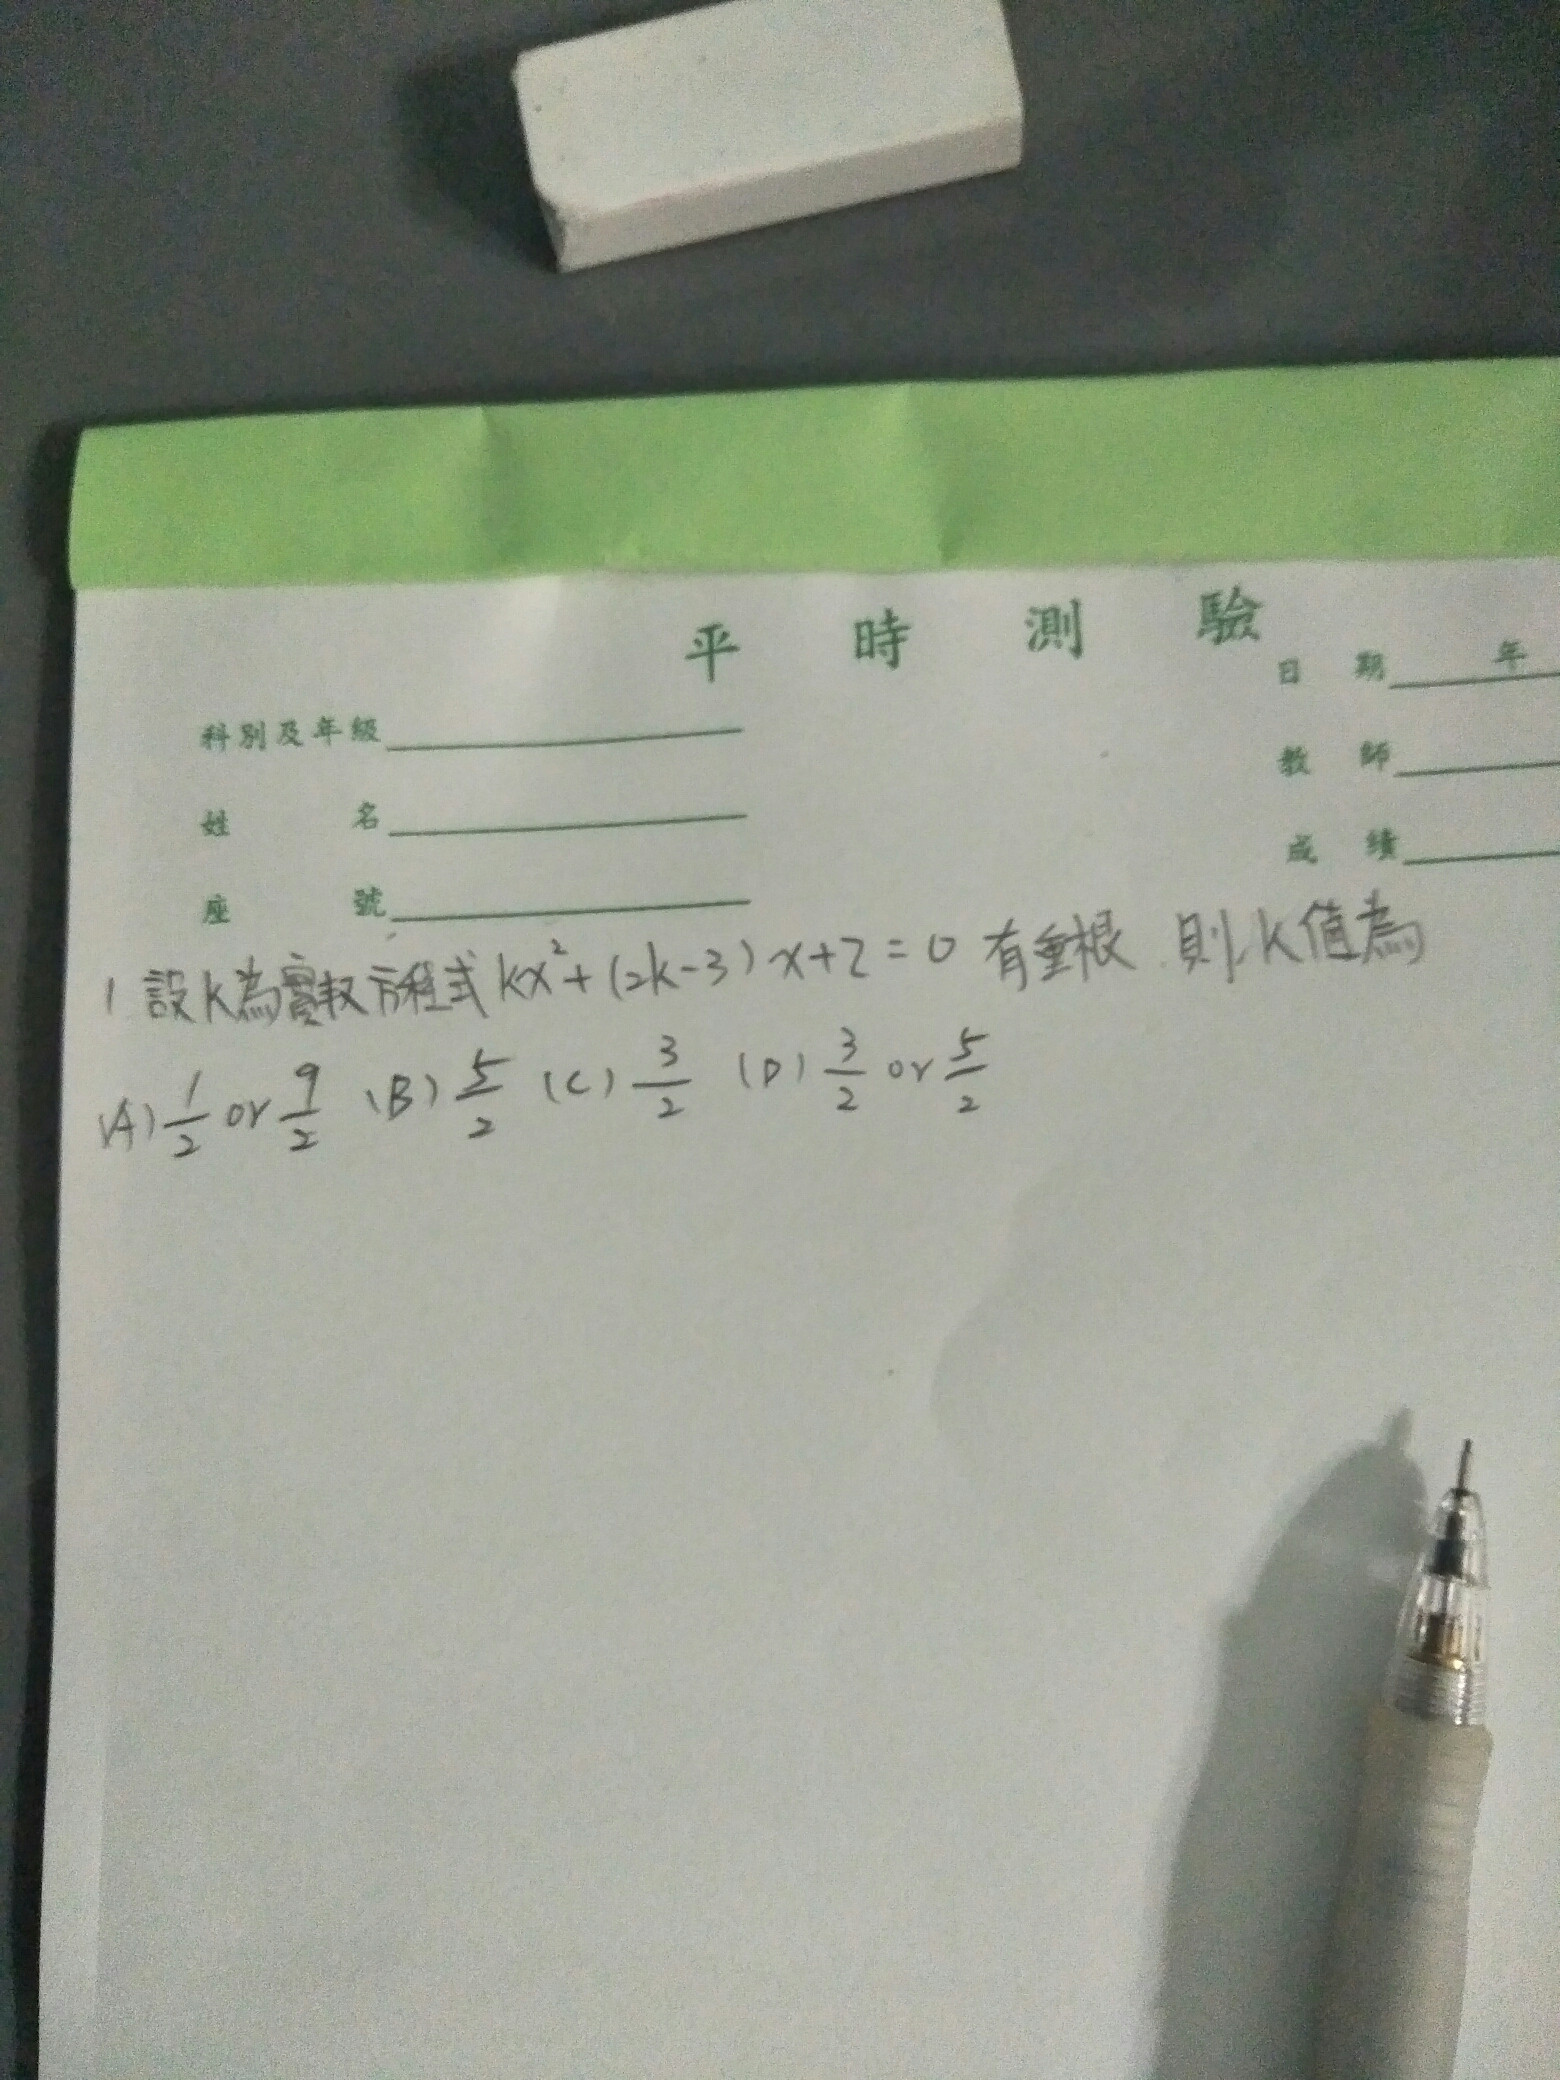 平時測驗
日期 年
科別及年級
教師
姓名
成績
座號
1 設k為實投方程式 kx²+(2k-3)x+2=0 有重根 則k值為
(A) 1/2 or 9/2 (B) 5/2 (C) 3/2 (D) 3/2 or 5/2